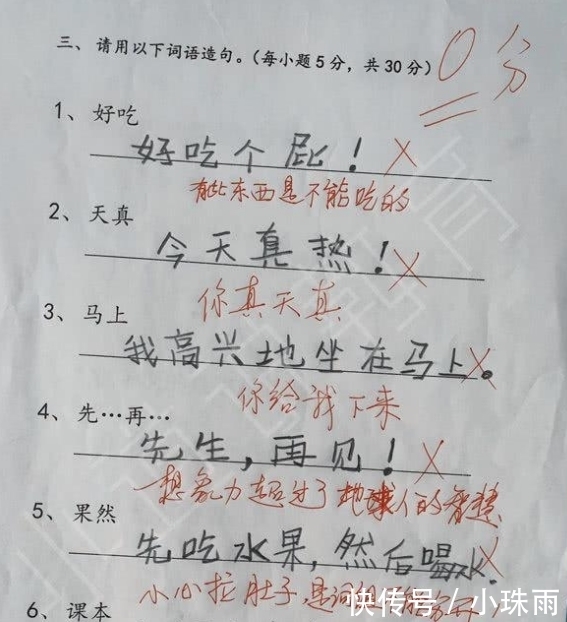 三、请用以下词语造句。(每小题5分，共30分) 0分
1、好吃
好吃个屁！
有些东西是不能吃的
2、天真
今天真热！
你真天真
3、马上
我高兴地坐在马上。
你给我下来
4、先…再…
先生，再见！
想象力超过了地球人的智慧
5、果然
先吃水果，然后喝水。
小心拉肚子，是词组
6、课本
快传号／小珠雨